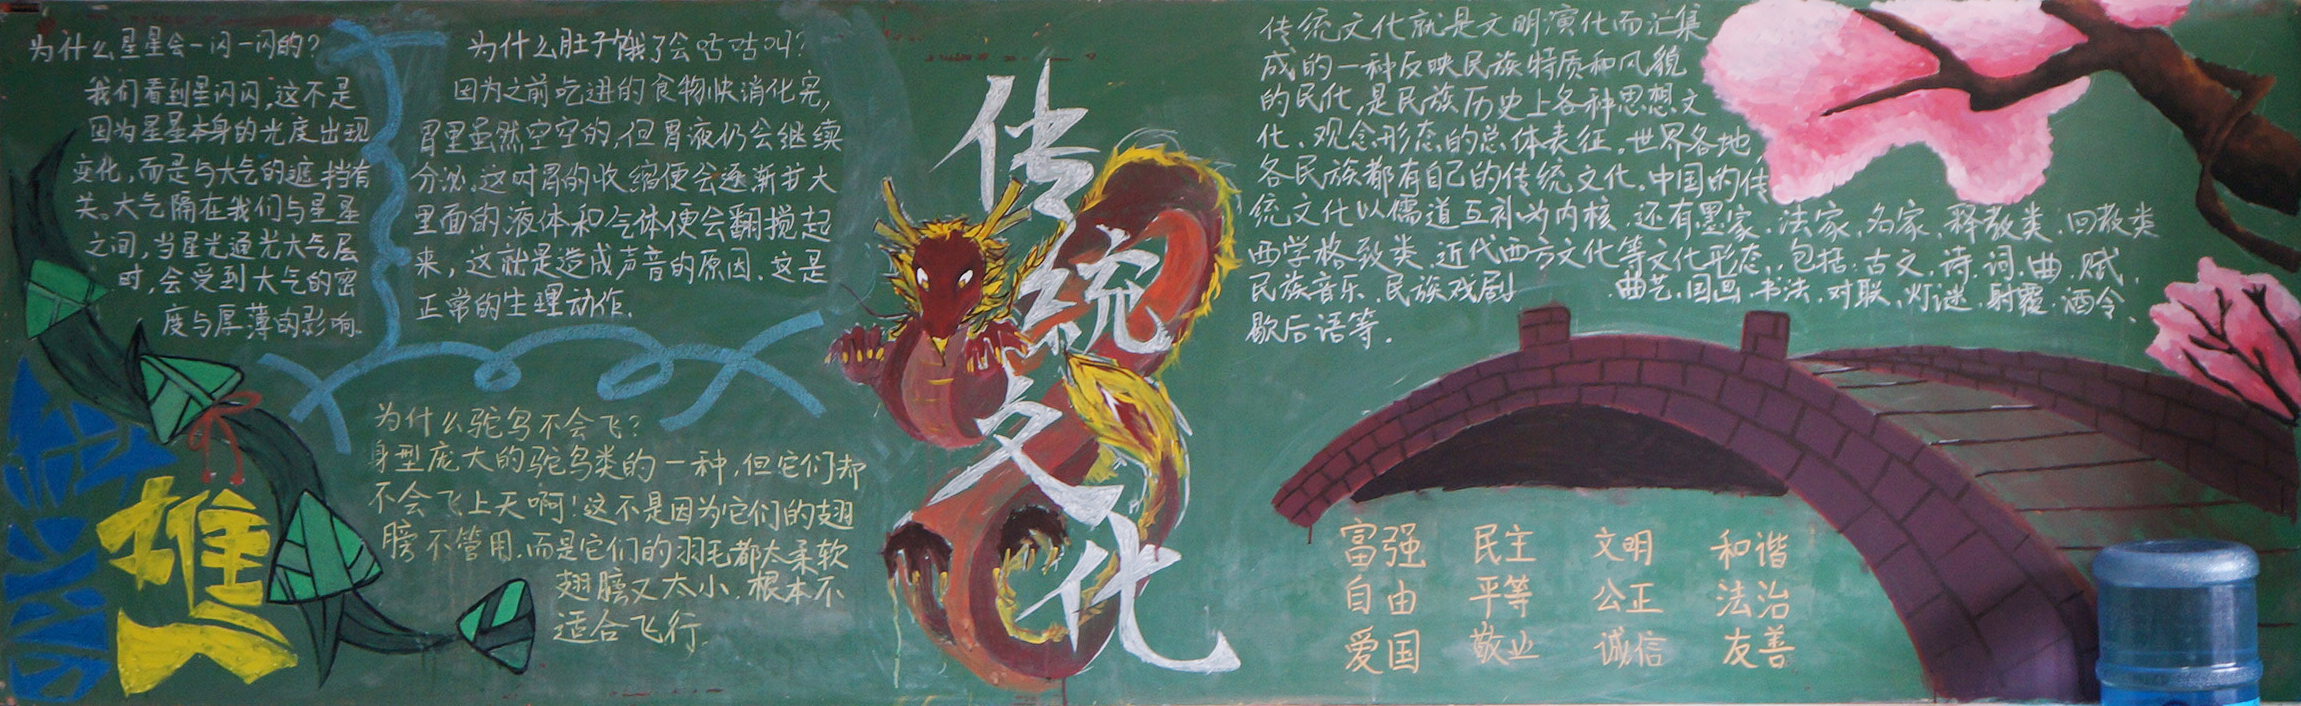 为什么星星会一闪一闪的?
我们看到星闪闪,这不是
因为星星本身的光度出现
变化,而是与大气的遮挡有
关。大气隔在我们与星星
之间,当星光通光大气层
时,会受到大气的密
度与厚薄的影响.
为什么肚子饿了会咕咕叫?
因为之前吃进的食物快消化完,
胃里虽然空空的,但胃液仍会继续
分泌.这时胃的收缩便会逐渐扩大
里面的液体和气体便会翻搅起
来,这就是造成声音的原因.这是
正常的生理动作.
为什么鸵鸟不会飞?
身型庞大的鸵鸟类的一种,但它们却
不会飞上天啊!这不是因为它们的翅
膀不管用.而是它们的羽毛都太柔软
翅膀又太小.根本不
适合飞行.
科普
推
传统文化
传统文化就是文明演化而汇集
成的一种反映民族特质和风貌
的民化,是民族历史上各种思想文
化、观念形态的总体表征.世界各地,
各民族都有自己的传统文化.中国的传
统文化以儒道互补为内核.还有墨家.法家.名家.释教类.回教类
西学格致类.近代西方文化等文化形态.包括:古文.诗.词.曲.赋.
民族音乐.民族戏剧.曲艺.国画.书法.对联.灯谜.射覆.酒令.
歇后语等.
富强 民主 文明 和谐
自由 平等 公正 法治
爱国 敬业 诚信 友善